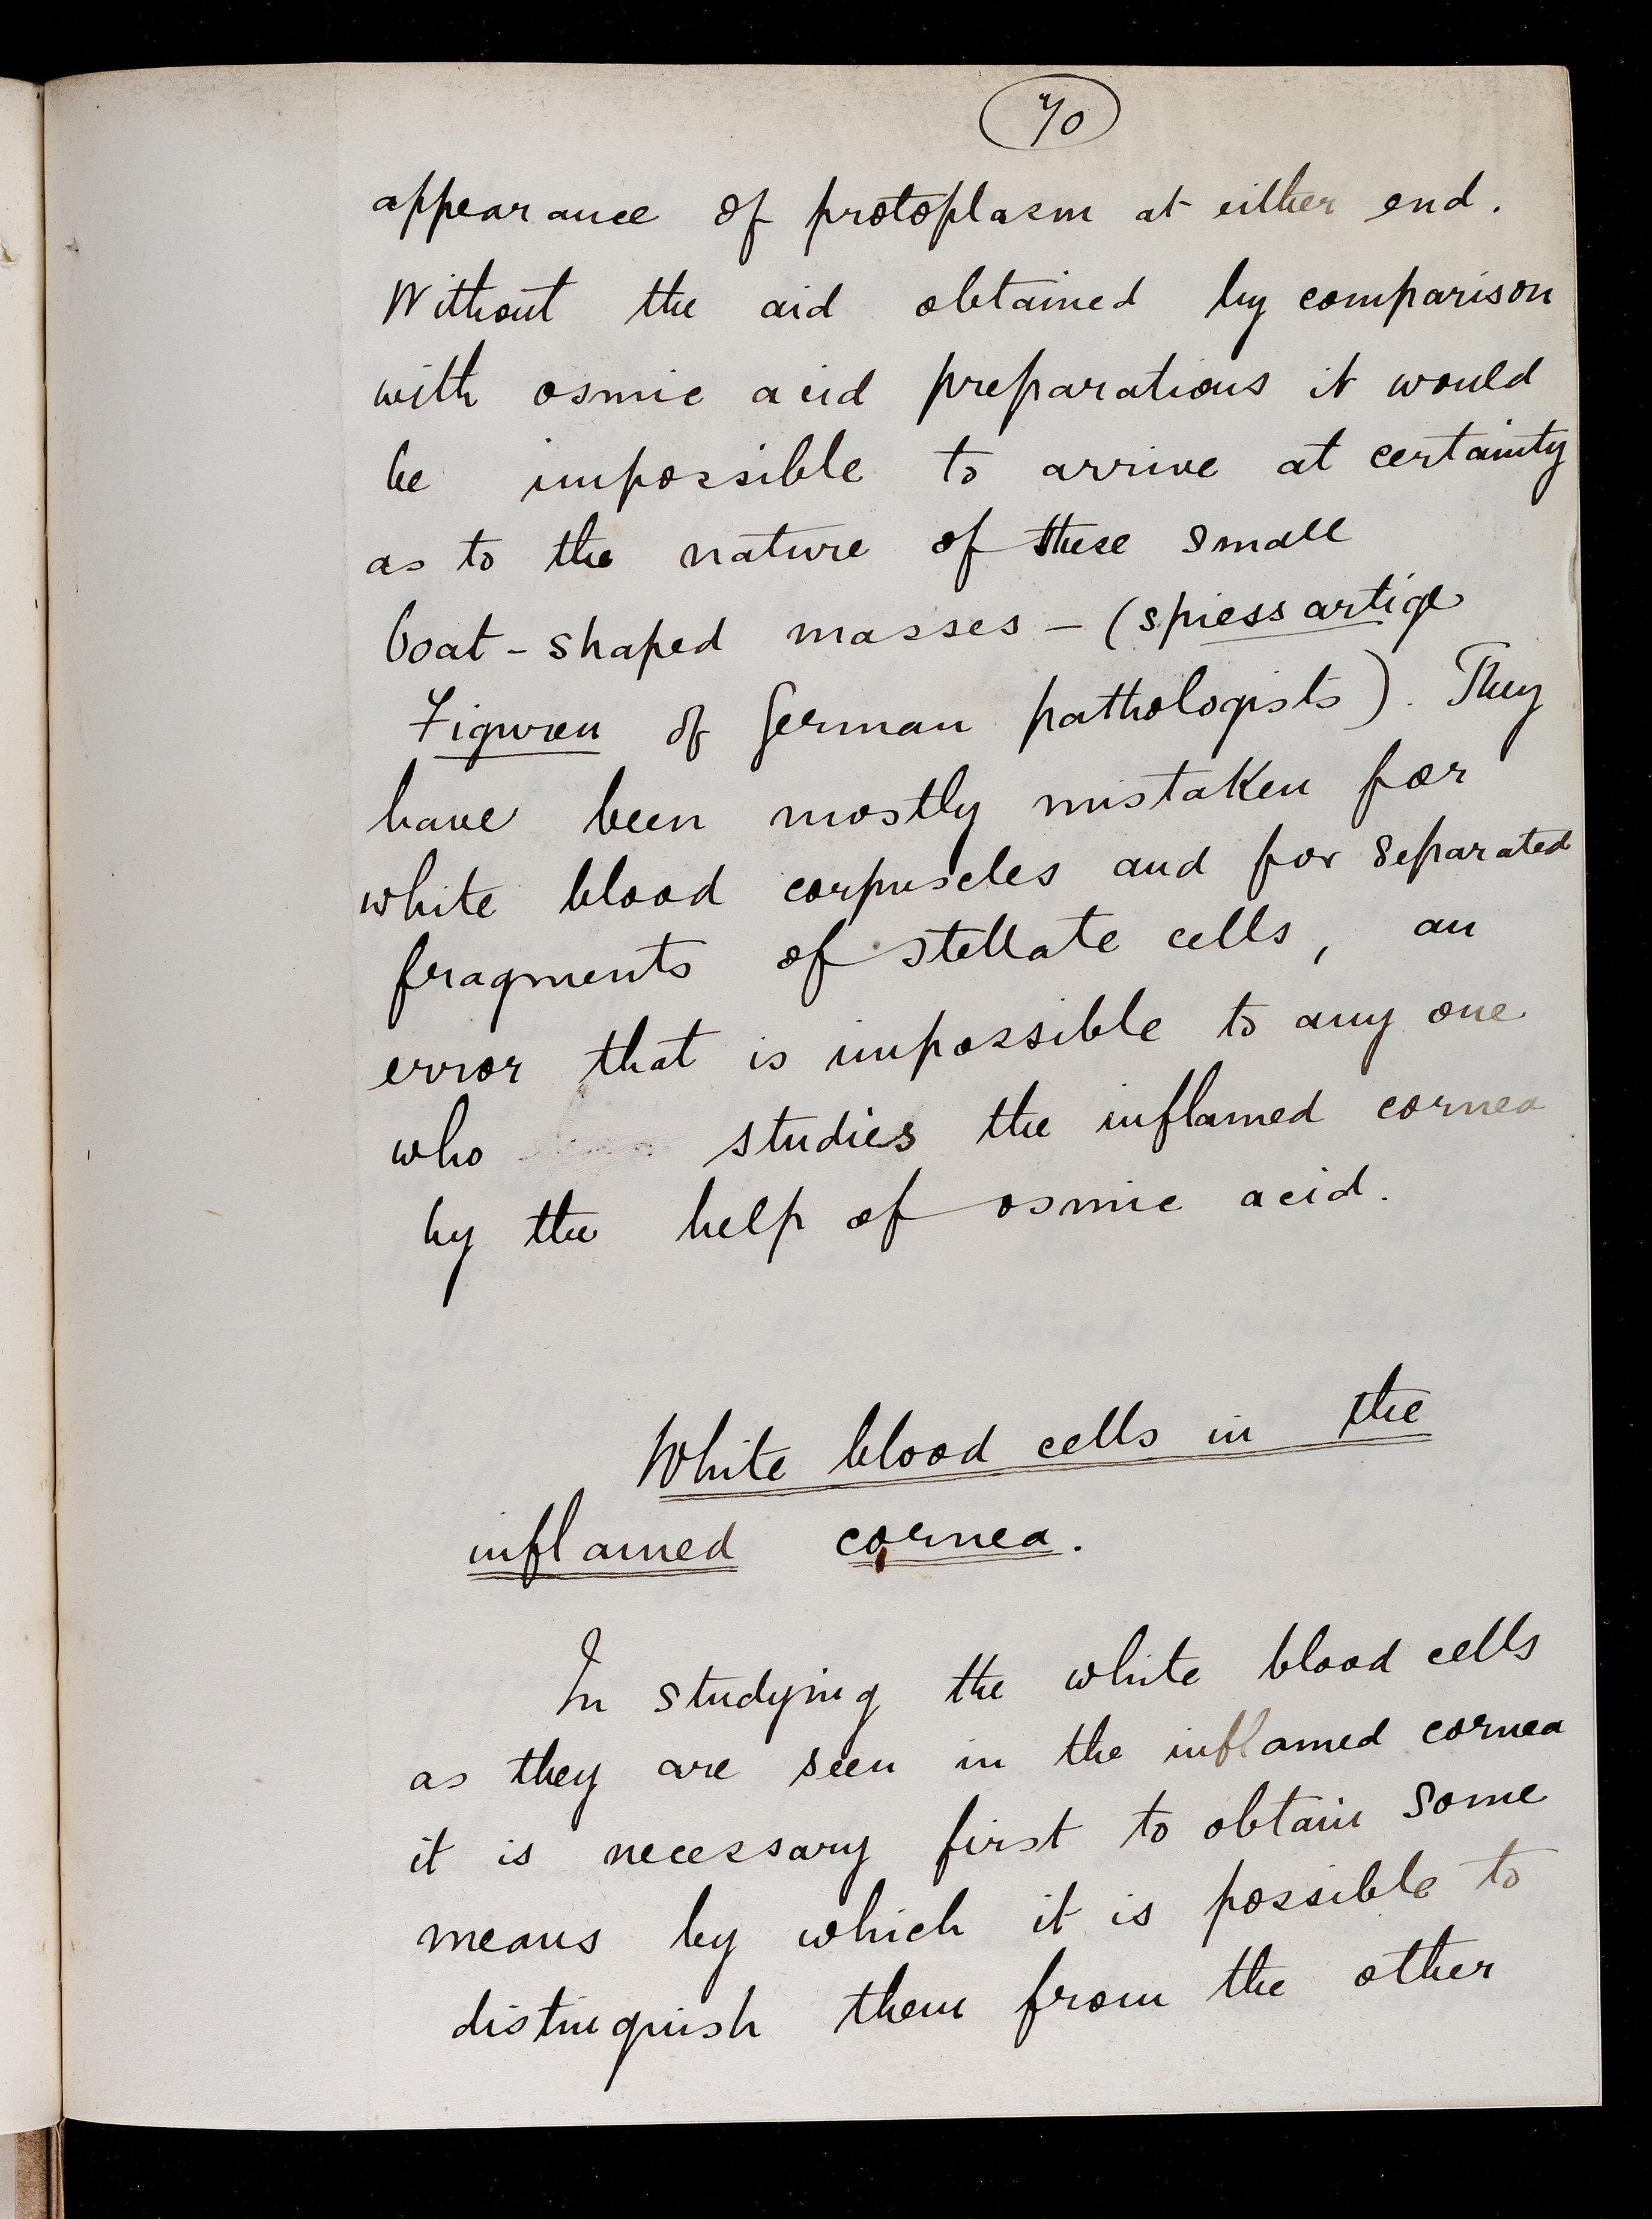 70
appearance of protoplasm at either end.
Without the aid obtained by comparison
with osmic acid preparations it would
be impossible to arrive at certainty
as to the nature of these small
boat-shaped masses - (spiessartige
Figuren of German pathologists). They
have been mostly mistaken for
white blood corpuscles and for separated
fragments of stellate cells, an
error that is impossible to any one
who studies the inflamed cornea
by the help of osmic acid.
White blood cells in the
inflamed cornea.
In studying the white blood cells
as they are seen in the inflamed cornea
it is necessary first to obtain some
means by which it is possible to
distinguish them from the other